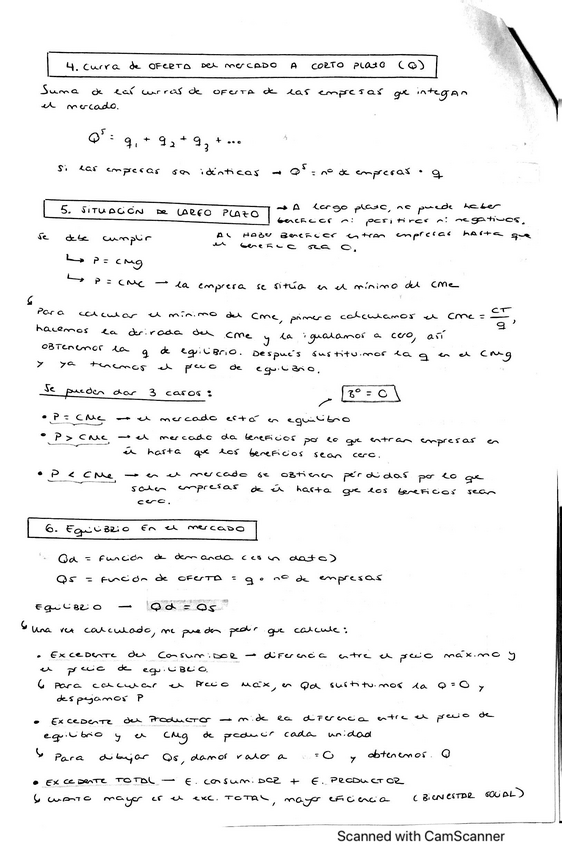 4. Curva de OFERTA DEL mercado A CORTO PLAZO (Q)
Suma de las curvas de OFERTA de las empresas que integran
el mercado.
Qˢ = q₁ + q₂ + q₃ + ...
Si las empresas son idénticas → Qˢ = nº de empresas · q
5. SITUACIÓN DE LARGO PLAZO → A largo plazo, no puede haber
beneficios ni positivos ni negativos.
Se debe cumplir AL HABER BENEFICIOS entran empresas HASTA que
el beneficio sea 0.
↳ P = CMg
↳ P = CMe → la empresa se sitúa en el mínimo del CMe
↳ Para calcular el mínimo del CMe, primero calculamos el CMe = CT/q,
hacemos la derivada del CMe y la igualamos a cero, así
OBTENEMOS la q de equilibrio. Después sustituimos la q en el CMg
y ya tenemos el precio de equilibrio.
Se pueden dar 3 casos: Bº = 0
• P = CMe → el mercado está en equilibrio
• P > CMe → el mercado da beneficios por lo que entran empresas en
él hasta que los beneficios sean cero.
• P < CMe → en el mercado se obtienen pérdidas por lo que
salen empresas de él hasta que los beneficios sean
cero.
6. EQUILIBRIO EN el mercado
Qd = Función de demanda (es un dato)
QS = Función de OFERTA = q · nº de empresas
EQUILIBRIO → Qd = QS
↳ Una vez calculado, me pueden pedir que calcule:
• EXCEDENTE del CONSUMIDOR → diferencia entre el precio máximo y
el precio de equilibrio.
↳ Para calcular el Precio Máx, en Qd sustituimos la Q = 0 y
despejamos P
• EXCEDENTE del PRODUCTOR → mide la diferencia entre el precio de
equilibrio y el CMg de producir cada unidad
↳ Para dibujar Qs, damos valor a = 0 y obtenemos Q
• EXCEDENTE TOTAL → E. CONSUMIDOR + E. PRODUCTOR
↳ cuanto mayor es el exc. TOTAL, mayor eficiencia (BIENESTAR SOCIAL)
Scanned with CamScanner